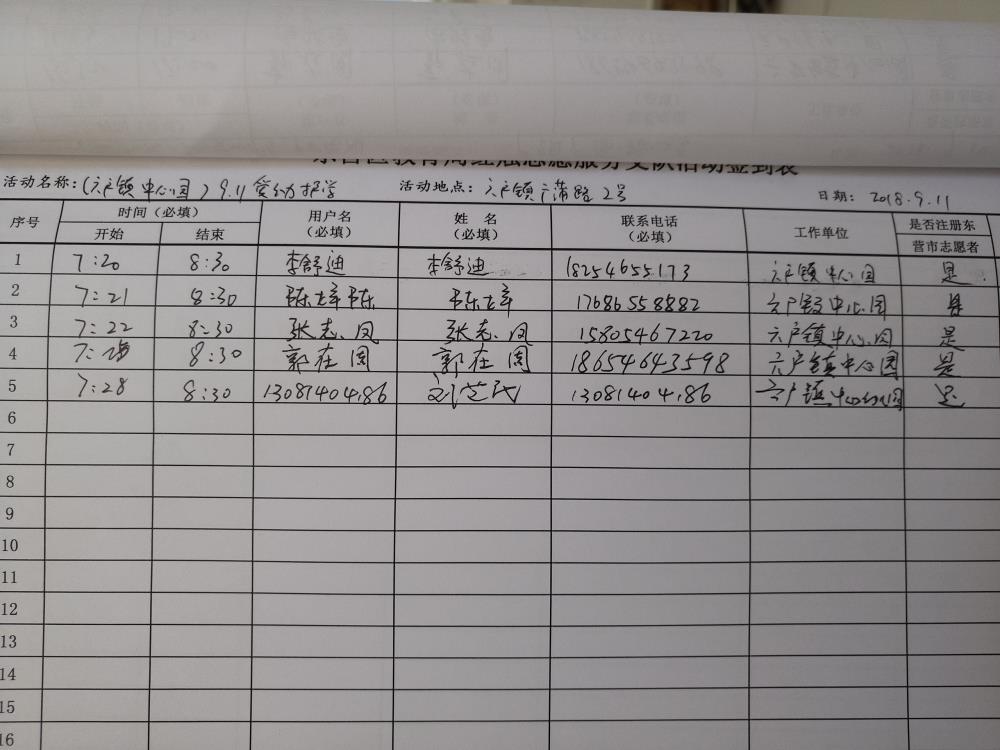 活动名称:(六户镇中心园)9.11爱幼护学 活动地点: 六户镇广蒲路2号 日期: 2018.9.11
序号 时间(必填) 用户名 姓 名 联系电话 工作单位 是否注册东
开始 结束 (必填) (必填) (必填) 营市志愿者
1 7:20 8:30 李舒迪 李舒迪 18254655173 六户镇中心园 是
2 7:21 8:30 17686558882 六户镇中心园 是
3 7:22 8:30 张志凤 张志凤 15805467220 六户镇中心园 是
4 8:30 郭在阁 郭在阁 18654643598 六户镇中心园 是
5 7:28 8:30 刘芝民 六户镇中心幼儿园 是
6
7
8
9
10
11
12
13
14
15
16